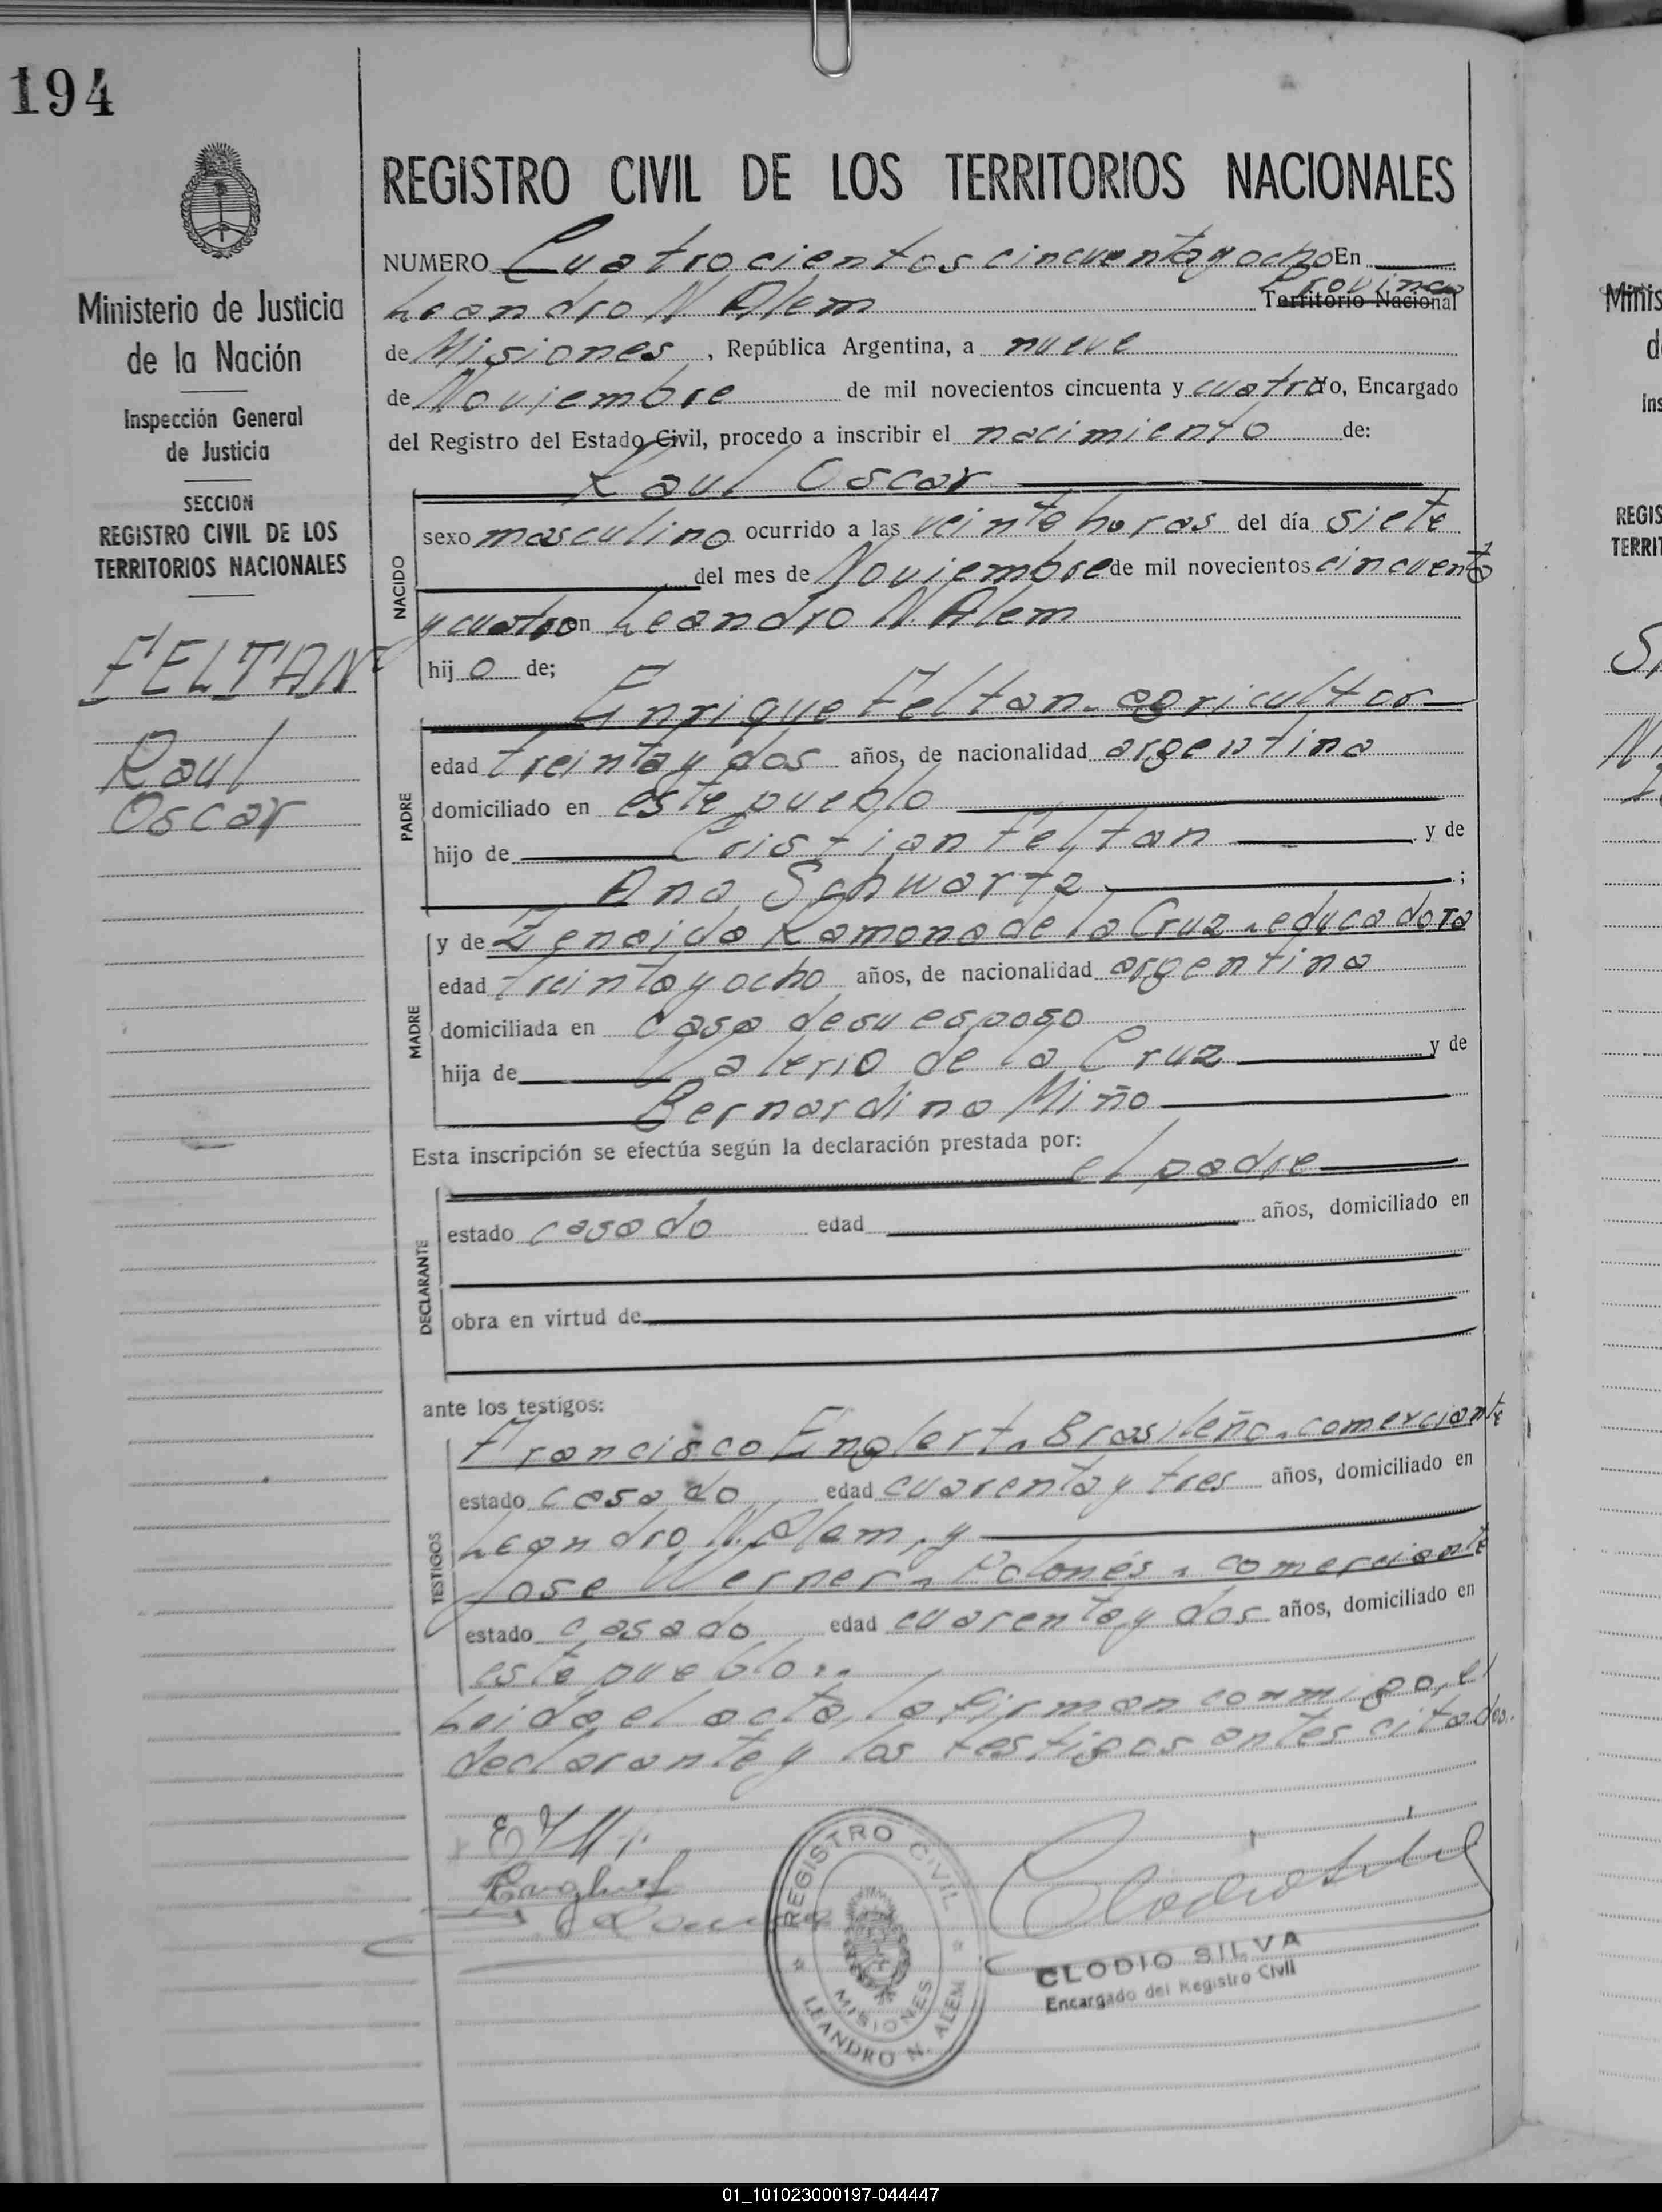 194
Ministerio de Justicia
de la Nación
Inspección General
de Justicia
SECCION
REGISTRO CIVIL DE LOS
TERRITORIOS NACIONALES
FELTAN
Raul
Oscar
REGISTRO CIVIL DE LOS TERRITORIOS NACIONALES
NUMERO Cuatrocientos cincuenta y ocho En
Provincia
Leandro N. Alem Territorio Nacional
de Misiones, República Argentina, a nueve
de Noviembre de mil novecientos cincuenta y cuatro Yo, Encargado
del Registro del Estado Civil, procedo a inscribir el nacimiento de:
Raul Oscar
NACIDO
sexo masculino ocurrido a las veinte horas del día siete
del mes de Noviembre de mil novecientos cincuenta
y cuatro en Leandro N. Alem
hijo de;
PADRE
Enrique Feltan - agricultor
edad treinta y dos años, de nacionalidad argentina
domiciliado en este pueblo
hijo de Cristian Feltan y de
Ana Schwartz ;
MADRE
y de Zenaida Ramona de la Cruz - educadora
edad treinta y ocho años, de nacionalidad argentina
domiciliada en casa de su esposo
hija de Valerio de la Cruz y de
Bernardina Miño
Esta inscripción se efectúa según la declaración prestada por:
el padre
DECLARANTE
estado casado edad años, domiciliado en
obra en virtud de
ante los testigos:
TESTIGOS
Francisco Englert - Brasileño - comerciante
estado casado edad cuarenta y tres años, domiciliado en
Leandro N. Alem, y
Jose Werner - Polonés - comerciante
estado casado edad cuarenta y dos años, domiciliado en
este pueblo..
Leida el acta, la firman conmigo, el
declarante y los testigos antes citados.
REGISTRO CIVIL
MISIONES
LEANDRO N. ALEM
Clodio Silva
CLODIO SILVA
Encargado del Registro Civil
01_101023000197-044447